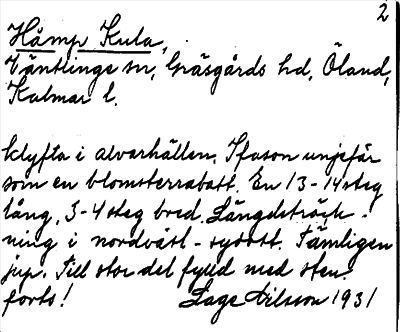 2
Håmp Kula,
Väntlinge sn, Gräsgårds hd, Öland,
Kalmar l.
Klyfta i alvarhällen. I fason ungefär
som en blomsterrabatt. En 13-14 steg
lång, 3-4 steg bred. Längdsträck-
ning i nordväst-sydost. Tämligen
jup. Till stor del fylld med sten.
forts! Lage Nilsson 1931